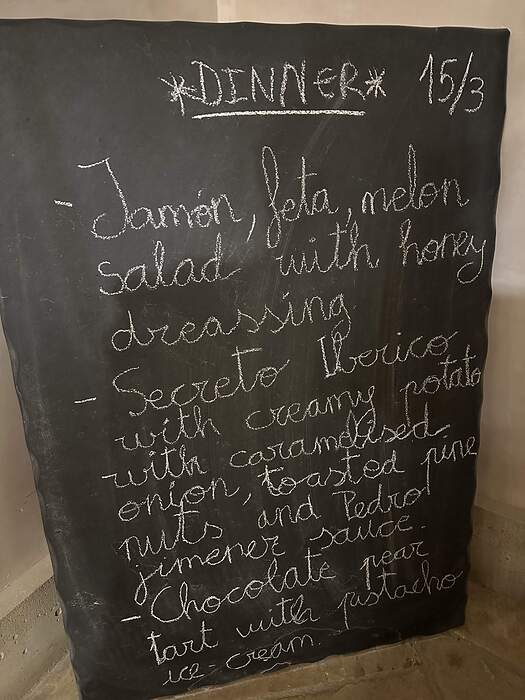 *DINNER* 15/3
- Jamón, feta, melon
salad with honey
dreassing
- Secreto Iberico
with creamy potato
with caramelised
onion, toasted pine
nuts and Pedro
jimener sauce.
- Chocolate pear
tart with pistacho
ice-cream.